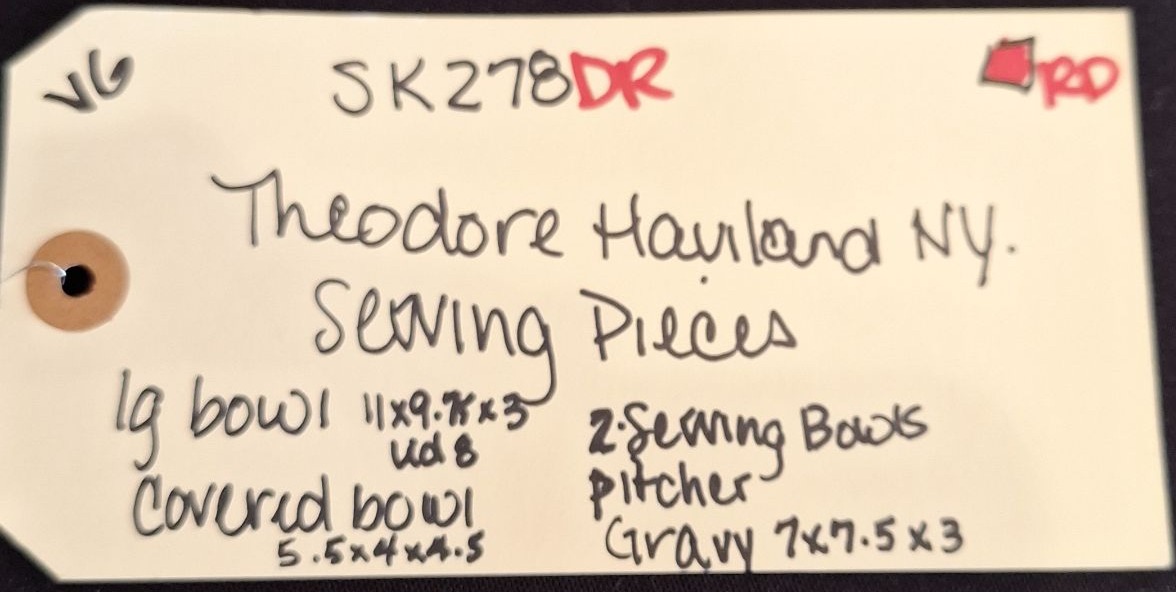 VG SK278DR RD
Theodore Haviland NY.
Serving Pieces
lg bowl 11x9.75x3
lid 8
Covered bowl
5.5x4x4.5
2-Serving Bowls
pitcher
Gravy 7x7.5x3